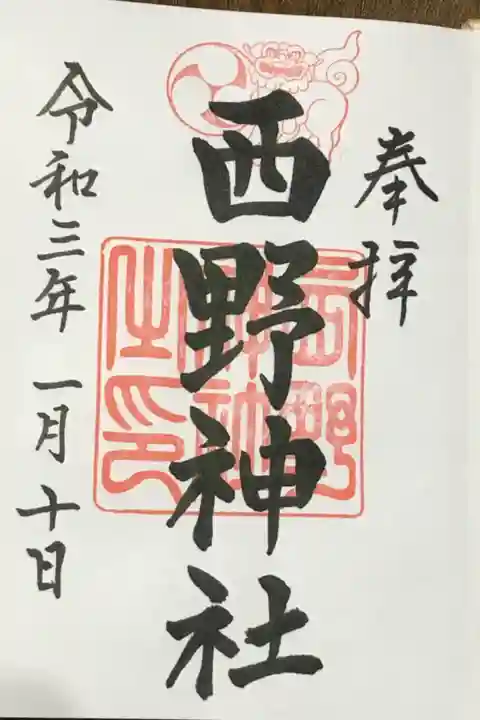 奉拝
西野神社
西野神社之印
令和三年一月十日